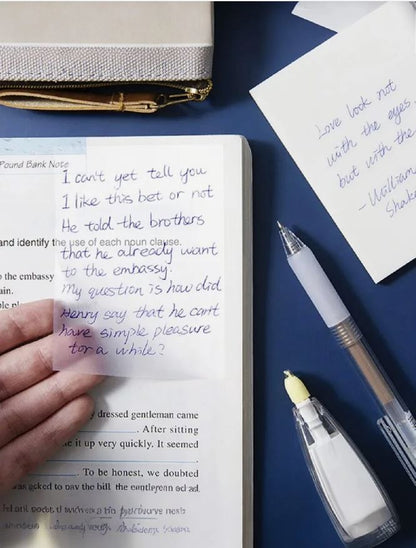 Pound Bank Note
I can't yet tell you
I like this bet or not
He told the brothers
and identify the use of each noun clause.
that he already want
to the embassy.
My question is how did
Henry say that he can't
have simple pleasure
for a while?
to the embassy
ain.
ple
dressed gentleman came
. After sitting
e it up very quickly. It seemed
. To be honest, we doubted
Love look not
with the eyes
but with the
- William
Shake